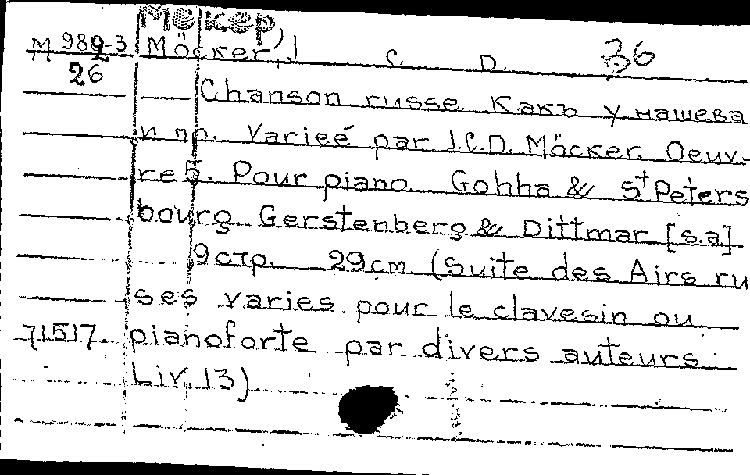 Мёкер,
М 989-3 Möcker, J. C. D. 36
26
Chanson russe Какъ у нашева
и пр. Varieé par J.C.D. Möcker. Oeuv-
re 5. Pour piano. Gohha & St Peters
bourg. Gerstenberg & Dittmar [s.a]
9 стр. 29 cm (Suite des Airs ru
ses varies pour le clavesin ou
71517 pianoforte par divers auteurs.
Liv. 13)